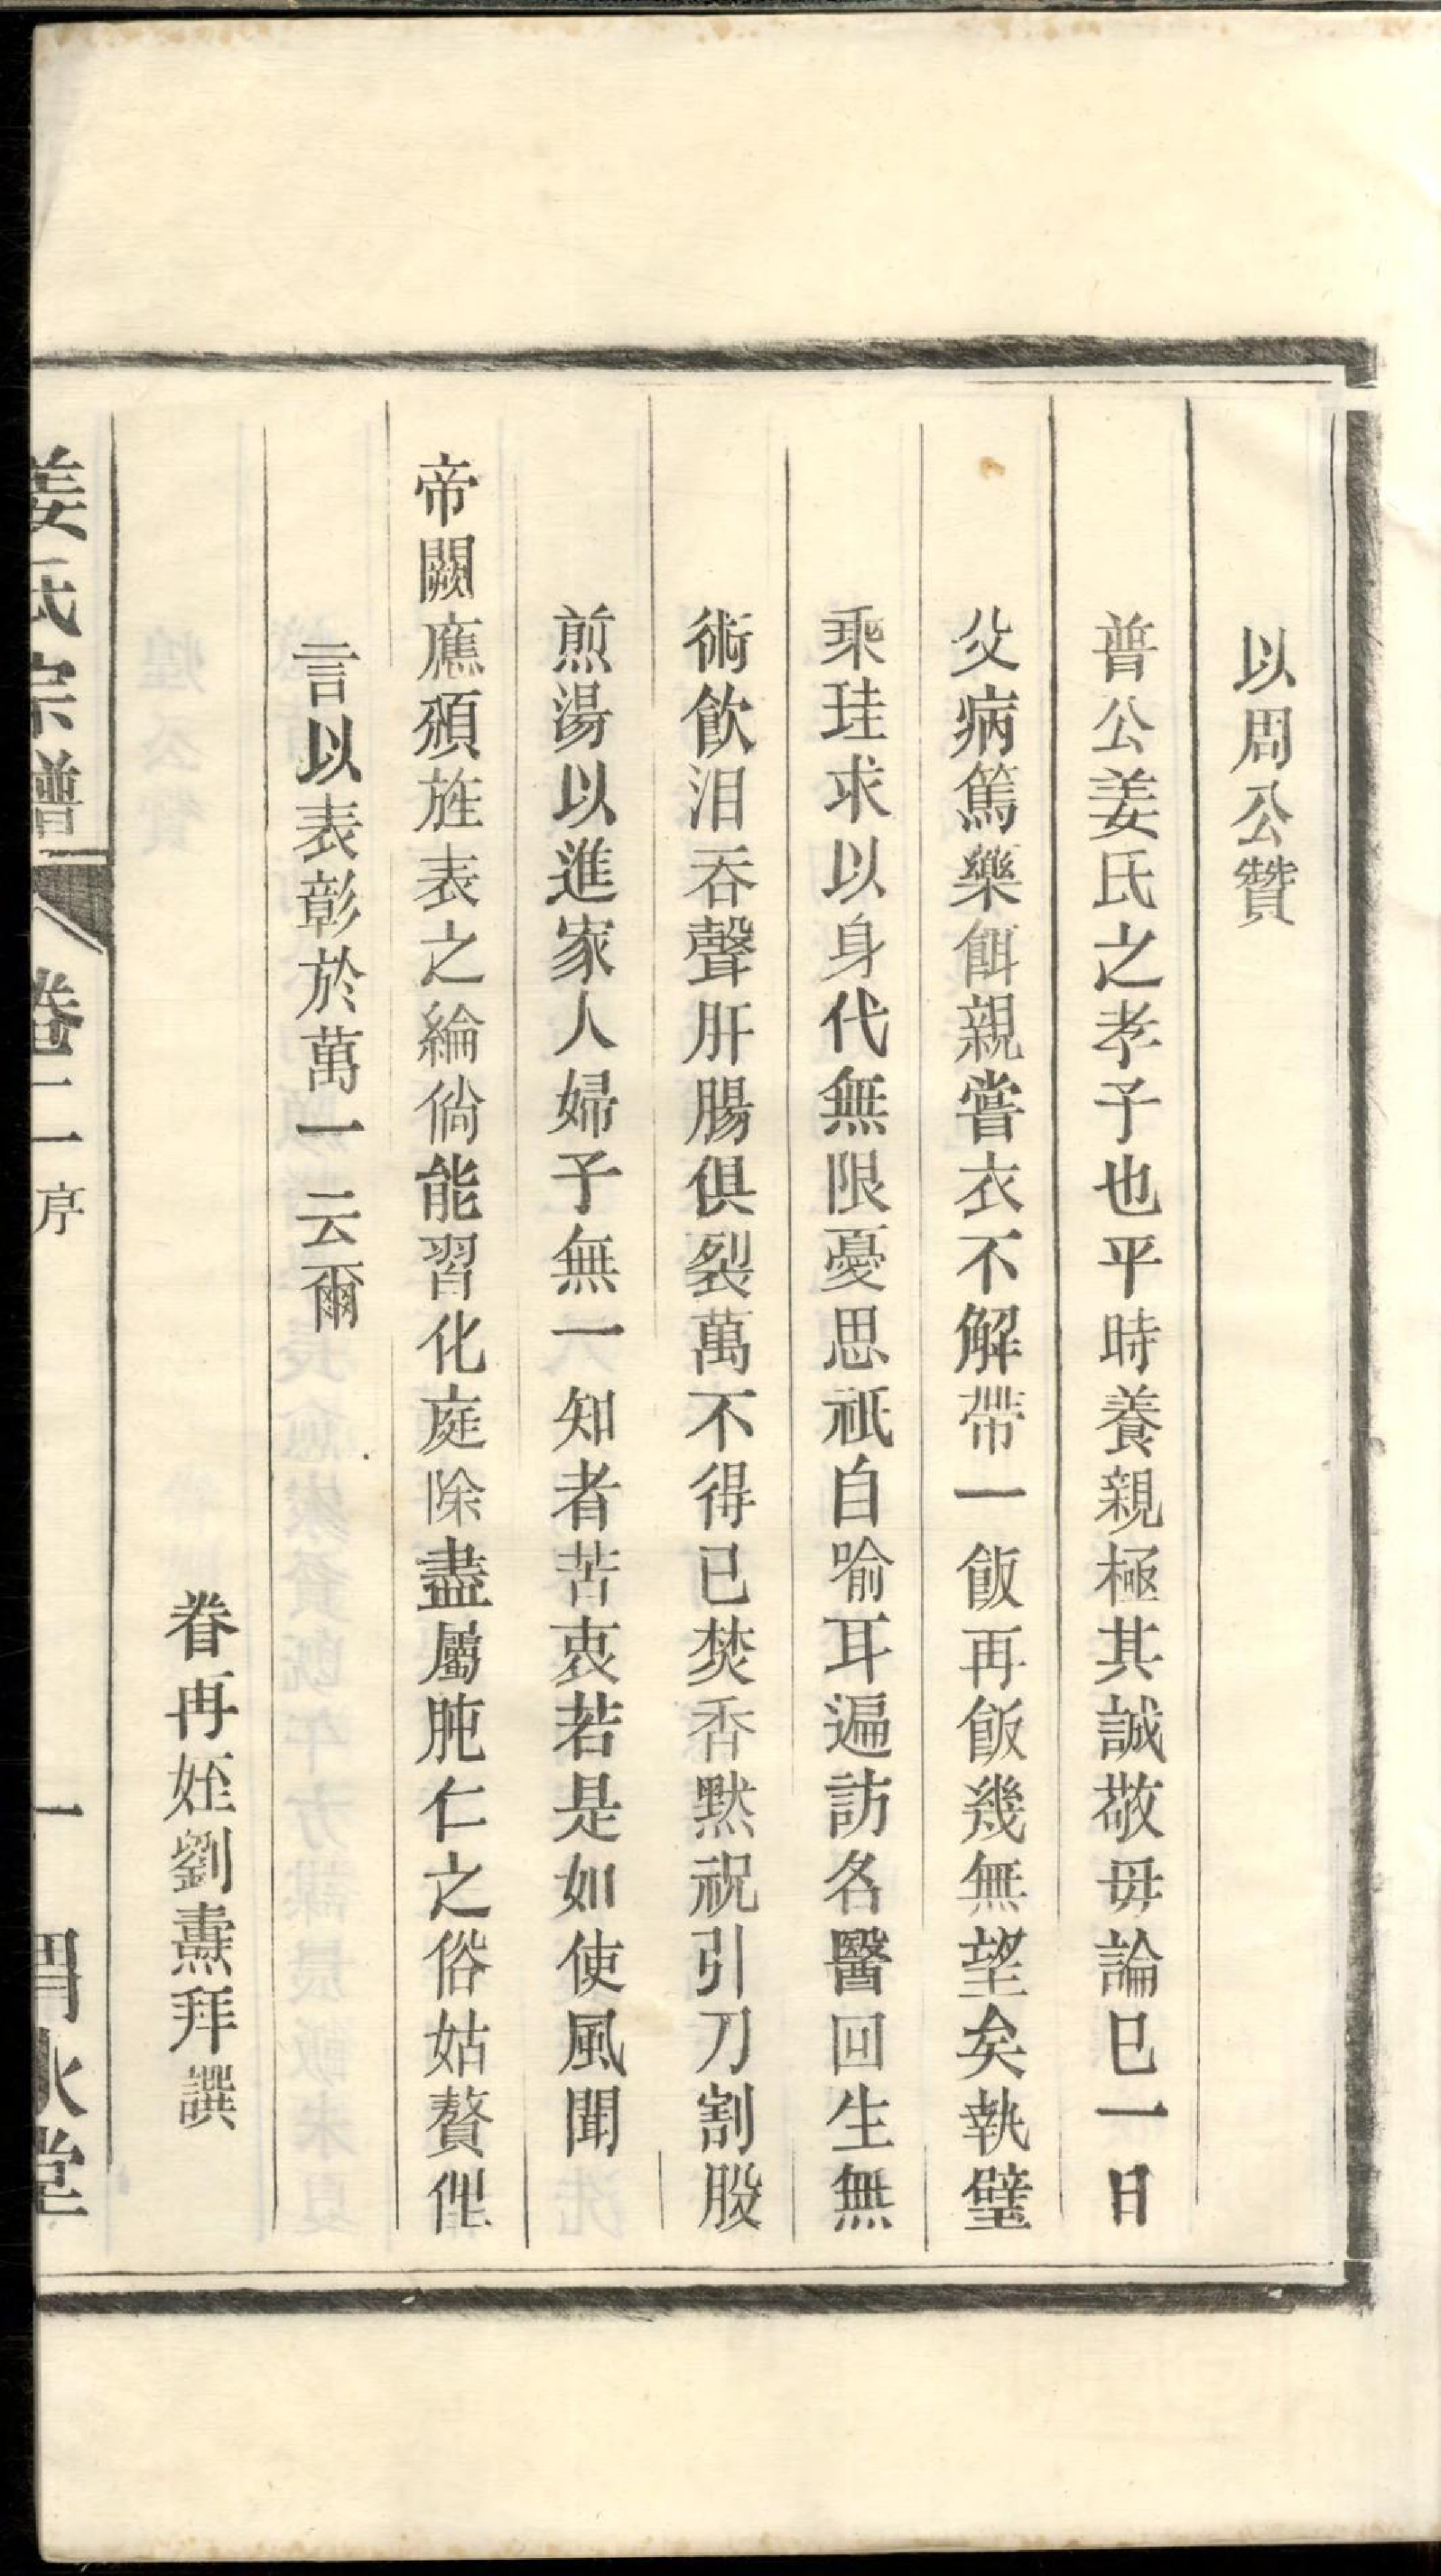 以周公贊
普公姜氏之孝子也平時養親極其誠敬毋論巳一日
父病篤藥餌親嘗衣不解帶一飯再飯幾無望矣執璧
乘珪求以身代無限憂思祇自喻耳遍訪名醫回生無
術飲泪吞聲肝腸俱裂萬不得已焚香默祝引刀割股
煎湯以進家人婦子無一知者苦衷若是如使風聞
帝闕應頒旌表之綸倘能習化庭除盡屬肫仁之俗姑贅俚
言以表彰於萬一云爾
眷冉姪劉燾拜譔
姜氏宗譜
卷二
序
一
渭水堂